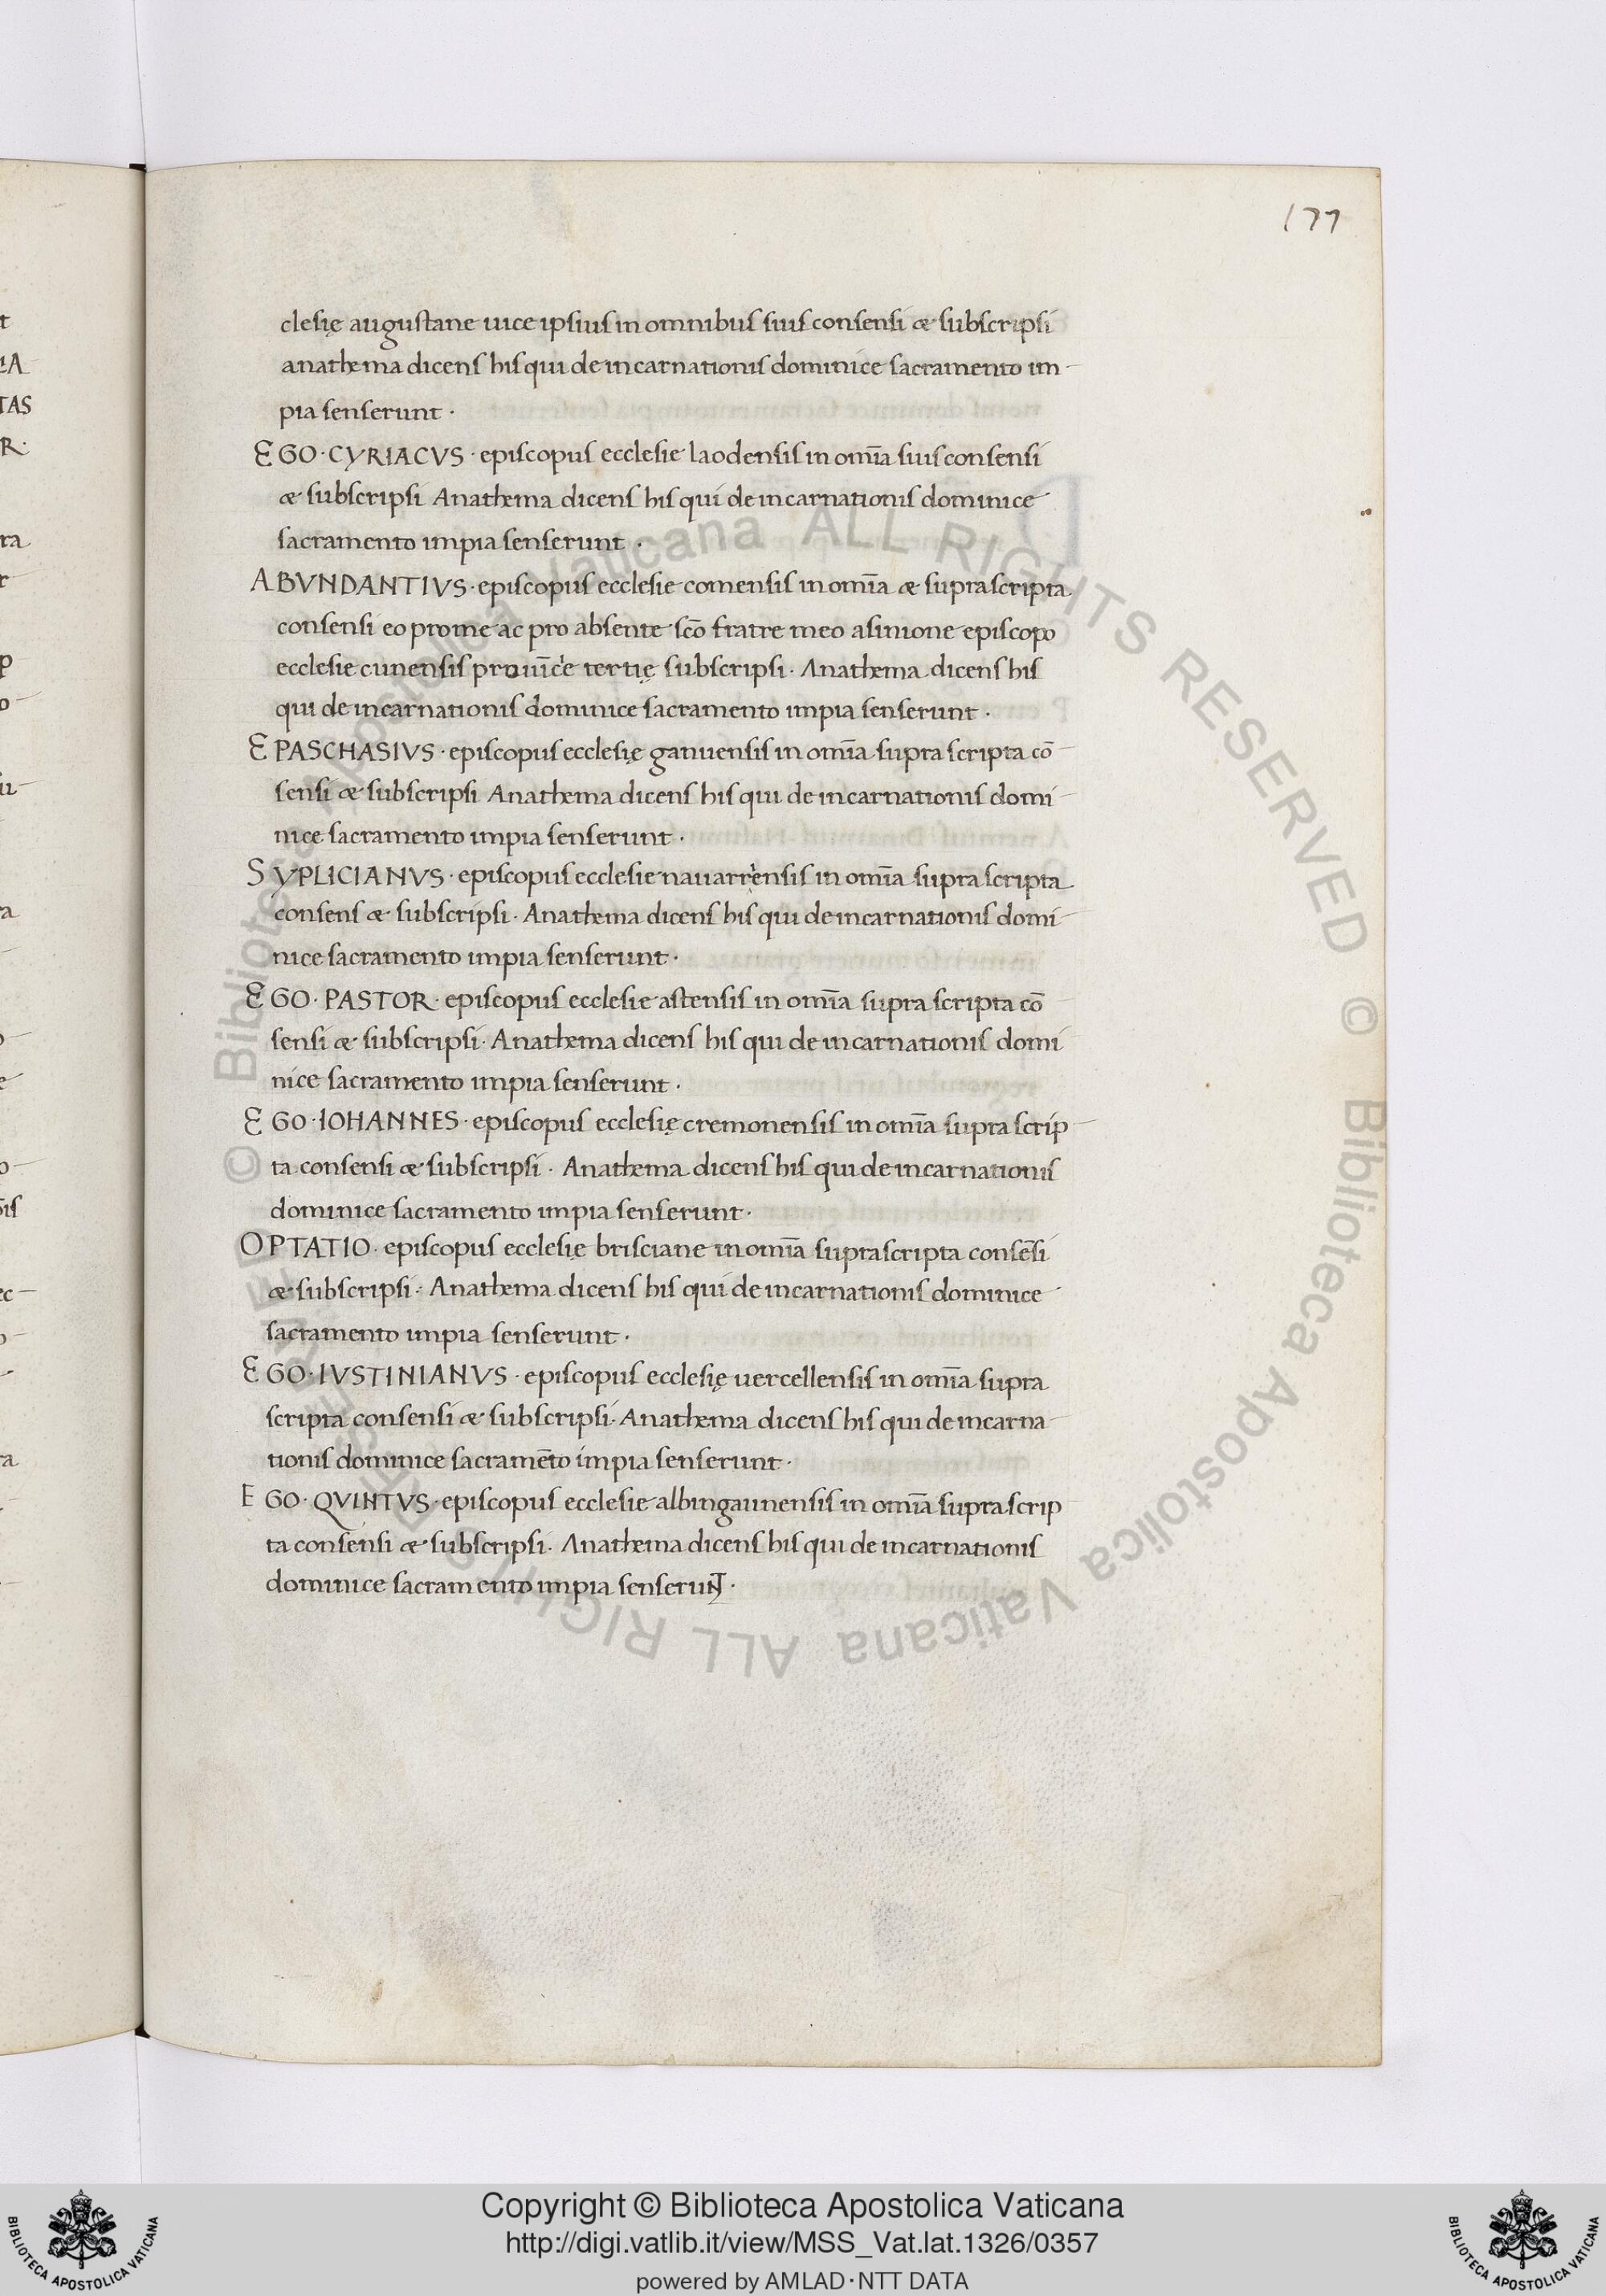 177
clesię augustane uice ipsius in omnibus suis consensi & subscripsi
anathema dicens his qui de incarnationis dominice sacramento im-
pia senserunt ·
EGO · CYRIACVS · episcopus ecclesie laodensis in om̄ia suis consensi
& subscripsi Anathema dicens his qui de incarnationis dominice
sacramento impia senserunt ·
ABVNDANTIVS · episcopus ecclesie comensis in om̄ia & suprascripta
consensi eo pro me ac pro absente sc̄o fratre meo asinione episcopo
ecclesie cunensis prouīce tertię subscripsi · Anathema dicens his
qui de incarnationis dominice sacramento impia senserunt ·
E PASCHASIVS · episcopus ecclesię ganuensis in om̄ia supra scripta cō
sensi & subscripsi Anathema dicens his qui de incarnationis domi
nice sacramento impia senserunt ·
SYPLICIANVS · episcopus ecclesie nauarrensis in om̄ia supra scripta
consens & subscripsi · Anathema dicens his qui de incarnationis domi
nice sacramento impia senserunt ·
EGO · PASTOR · episcopus ecclesie astensis in om̄ia supra scripta cō
sensi & subscripsi · Anathema dicens his qui de incarnationis domi
nice sacramento impia senserunt ·
EGO · IOHANNES · episcopus ecclesię cremonensis in om̄ia supra scrip
ta consensi & subscripsi · Anathema dicens his qui de incarnationis
dominice sacramento impia senserunt ·
OPTATIO · episcopus ecclesię brisciane in om̄ia suprascripta consēsi
& subscripsi · Anathema dicens his qui de incarnationis dominice
sacramento impia senserunt ·
EGO · IVSTINIANVS · episcopus ecclesię uercellensis in om̄ia supra
scripta consensi & subscripsi · Anathema dicens his qui de incarna
tionis dominice sacramēto impia senserunt ·
EGO · QVINTVS · episcopus ecclesie albingaunensis in om̄ia suprascrip
ta consensi & subscripsi · Anathema dicens his qui de incarnationis
dominice sacramento impia senserunT ·
© Biblioteca Apostolica Vaticana ALL RIGHTS RESERVED © Biblioteca Apostolica Vaticana ALL RIGHTS RESERVED
BIBLIOTECA APOSTOLICA VATICANA
Copyright © Biblioteca Apostolica Vaticana
http://digi.vatlib.it/view/MSS_Vat.lat.1326/0357
powered by AMLAD·NTT DATA
BIBLIOTECA APOSTOLICA VATICANA